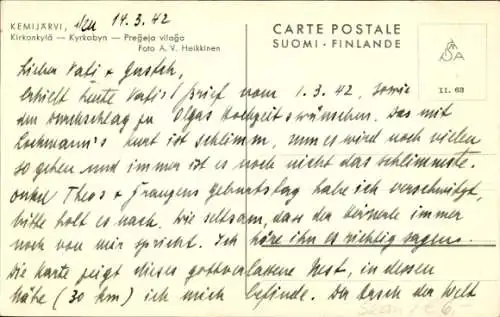 KEMIJÄRVI, den 14.3.42
Kirkonkylä — Kyrkabyn — Preĝeja vilaĝo
Foto A. V. Heikkinen
CARTE POSTALE
SUOMI - FINLANDE
11. 68
Lieber Vati + Gustch,
erhielt heute Vatis Brief vom 1.3.42, sowie
den Durchschlag zu Olgas Hochzeitswünschen. Das mit
Lochmann's Kurt ist schlimm, nun es wird noch vielen
so gehen und immer ist es noch nicht das schlimmste.
Onkel Theos + Franzens Geburtstag habe ich verschwitzt,
bitte holt es nach. Wie seltsam, dass der immer
noch von mir spricht. Ich höre ihn es richtig sagen.
Die Karte zeigt dieses gottverlassene Nest, in dessen
Nähe (30 km) ich mich befinde. Der Arsch der Welt